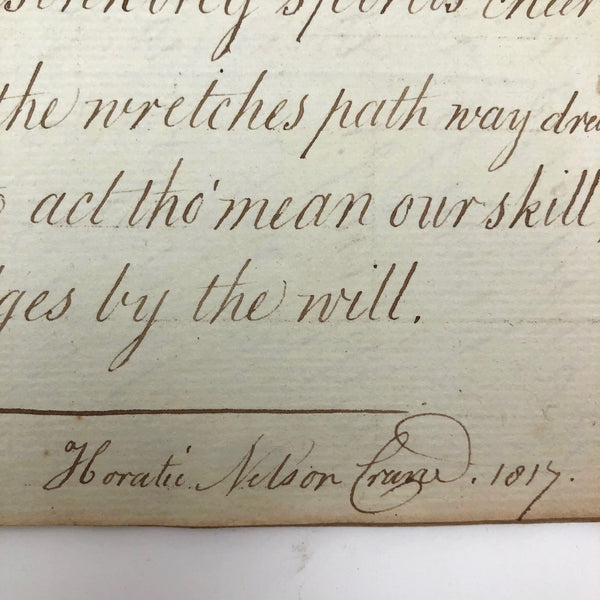 sports
the wretches path way
act tho' mean our skill,
by the will.
Horatio Nelson Crane. 1817.